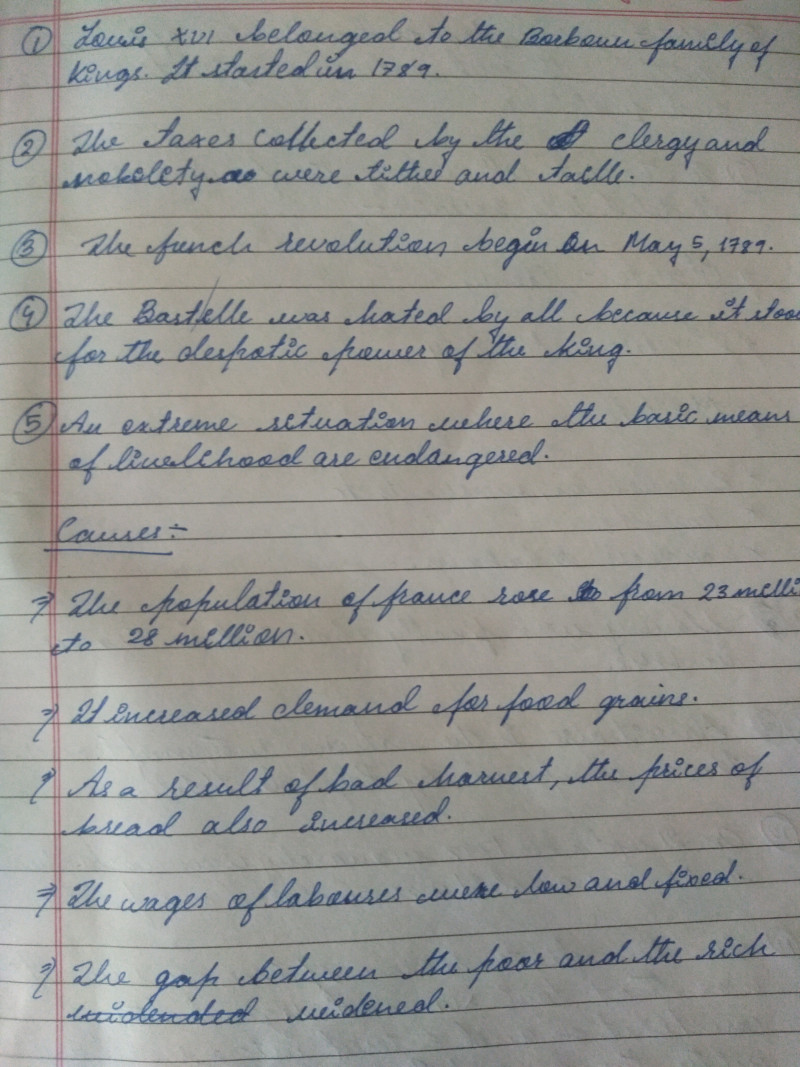 ① Louis XVI belonged to the Borboun family of
kings. It started in 1789.
② The taxes collected by the clergy and
nobility were tithe and taille.
③ The french revolution begin on May 5, 1789.
④ The Bastelle was hated by all because it stoo
for the despotic power of the king.
⑤ An extreme situation where the basic means
of livelihood are endangered.
Causes:-
⇒ The population of france rose from 23 milli
to 28 million.
⇒ It increased demand for food grains.
⇒ As a result of bad harvest, the prices of
bread also increased.
⇒ The wages of labours were low and fixed.
⇒ The gap between the poor and the rich
widended widened.